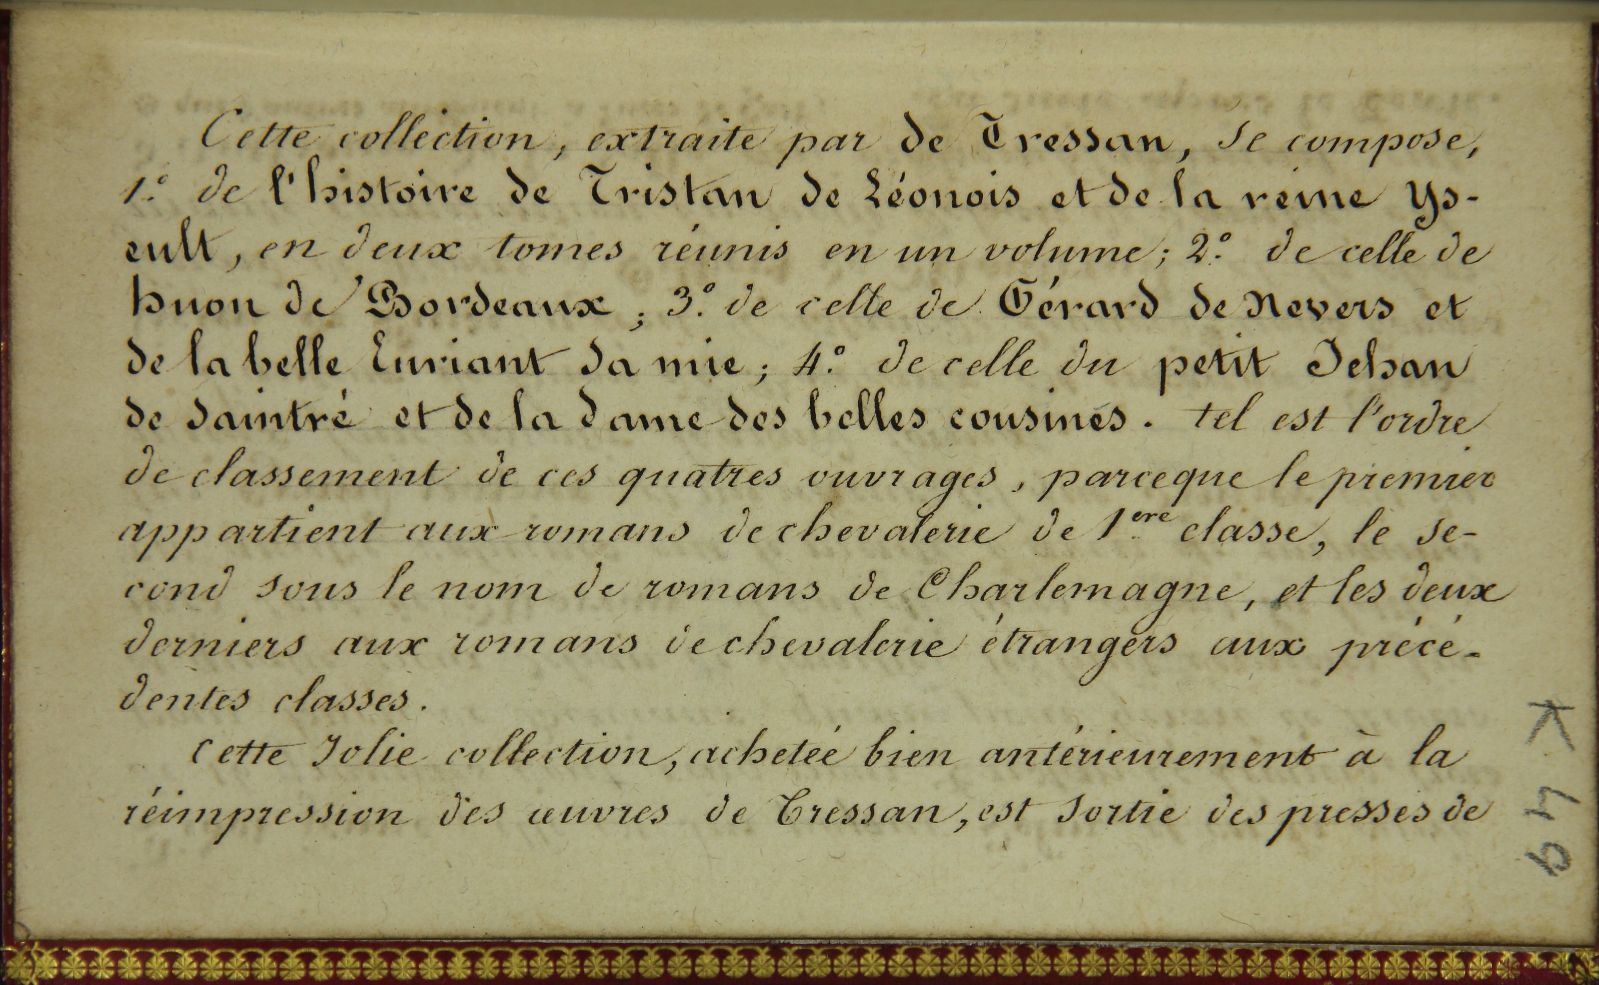 Cette collection, extraite par de Tressan, se compose,
1.º de l'histoire de Tristan de Léonois et de la reine Ys-
eult, en deux tomes réunis en un volume; 2.º de celle de
huon de Bordeaux; 3.º de celle de Gérard de Nevers et
de la belle Euriant sa mie; 4.º de celle du petit Jehan
de saintré et de la dame des belles cousines. tel est l'ordre
de classement de ces quatres ouvrages, parceque le premier
appartient aux romans de chevalerie de 1.ere classe, le se-
cond sous le nom de romans de Charlemagne, et les deux
derniers aux romans de chevalerie étrangers aux précé-
dentes classes.
Cette Jolie collection, achetée bien antérieurement à la
réimpression des œuvres de Tressan, est sortie des presses de